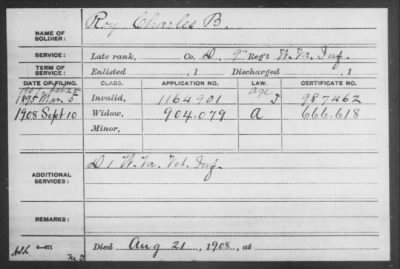 NAME OF SOLDIER: Roy Charles B.
SERVICE: Late rank, Co. D, 9" Reg't W. Va. Inf.
TERM OF SERVICE: Enlisted , 1 Discharged , 1
DATE OF FILING. CLASS. APPLICATION NO. LAW. CERTIFICATE NO.
1907
1895 Mar 5 Invalid, 1164901 Age 987462
1908 Sept 10 Widow, 904.079 A 666.618
Minor,
ADDITIONAL SERVICES: D 1 W. Va. Vet. Inf.
REMARKS:
Died Aug 21, 1908, at